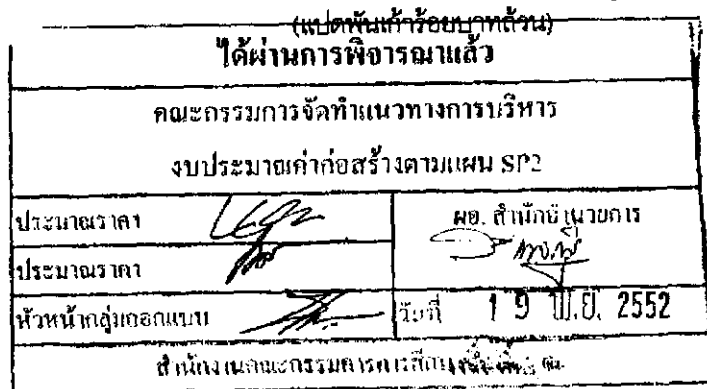 (แปดพันเก้าร้อยบาทถ้วน)
ได้ผ่านการพิจารณาแล้ว
คณะกรรมการจัดทำแนวทางการบริหาร
งบประมาณค่าก่อสร้างตามแผน SP2
ประมาณราคา
ผอ. สำนักอำนวยการ
ประมาณราคา
หัวหน้ากลุ่มออกแบบ
วันที่ 19 พ.ย. 2552
สำนักงานคณะกรรมการการศึกษา